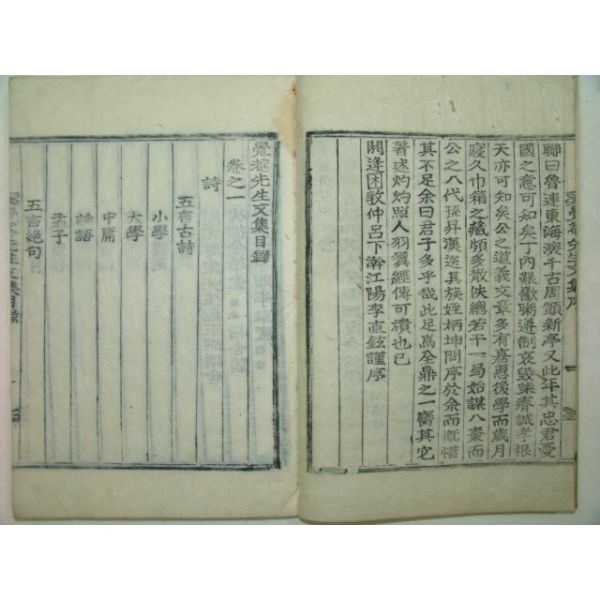 聯曰魯連東海濶千古周顗新亭又此年其忠君憂
國之意可知矣丁內艱歠粥遵制哀毀欒齋誠孝根
天亦可知矣公之道義文章多有嘉惠後學而歲月
寢久巾箱之藏頗多散佚總若干一局始謀入棗而
公之八代孫昇漢送其族姪炳坤問序於余而慨惜
其不足余曰君子多乎哉此足爲全鼎之一臠其它
著述灼灼照人羽翼經傳可襀也已
閼逢困敦仲呂下澣江陽李直鉉謹序
先生文集序
先生文集目錄
卷之一
詩
五言古詩
小學
大學
中庸
論語
孟子
五言絕句
先生文集目錄